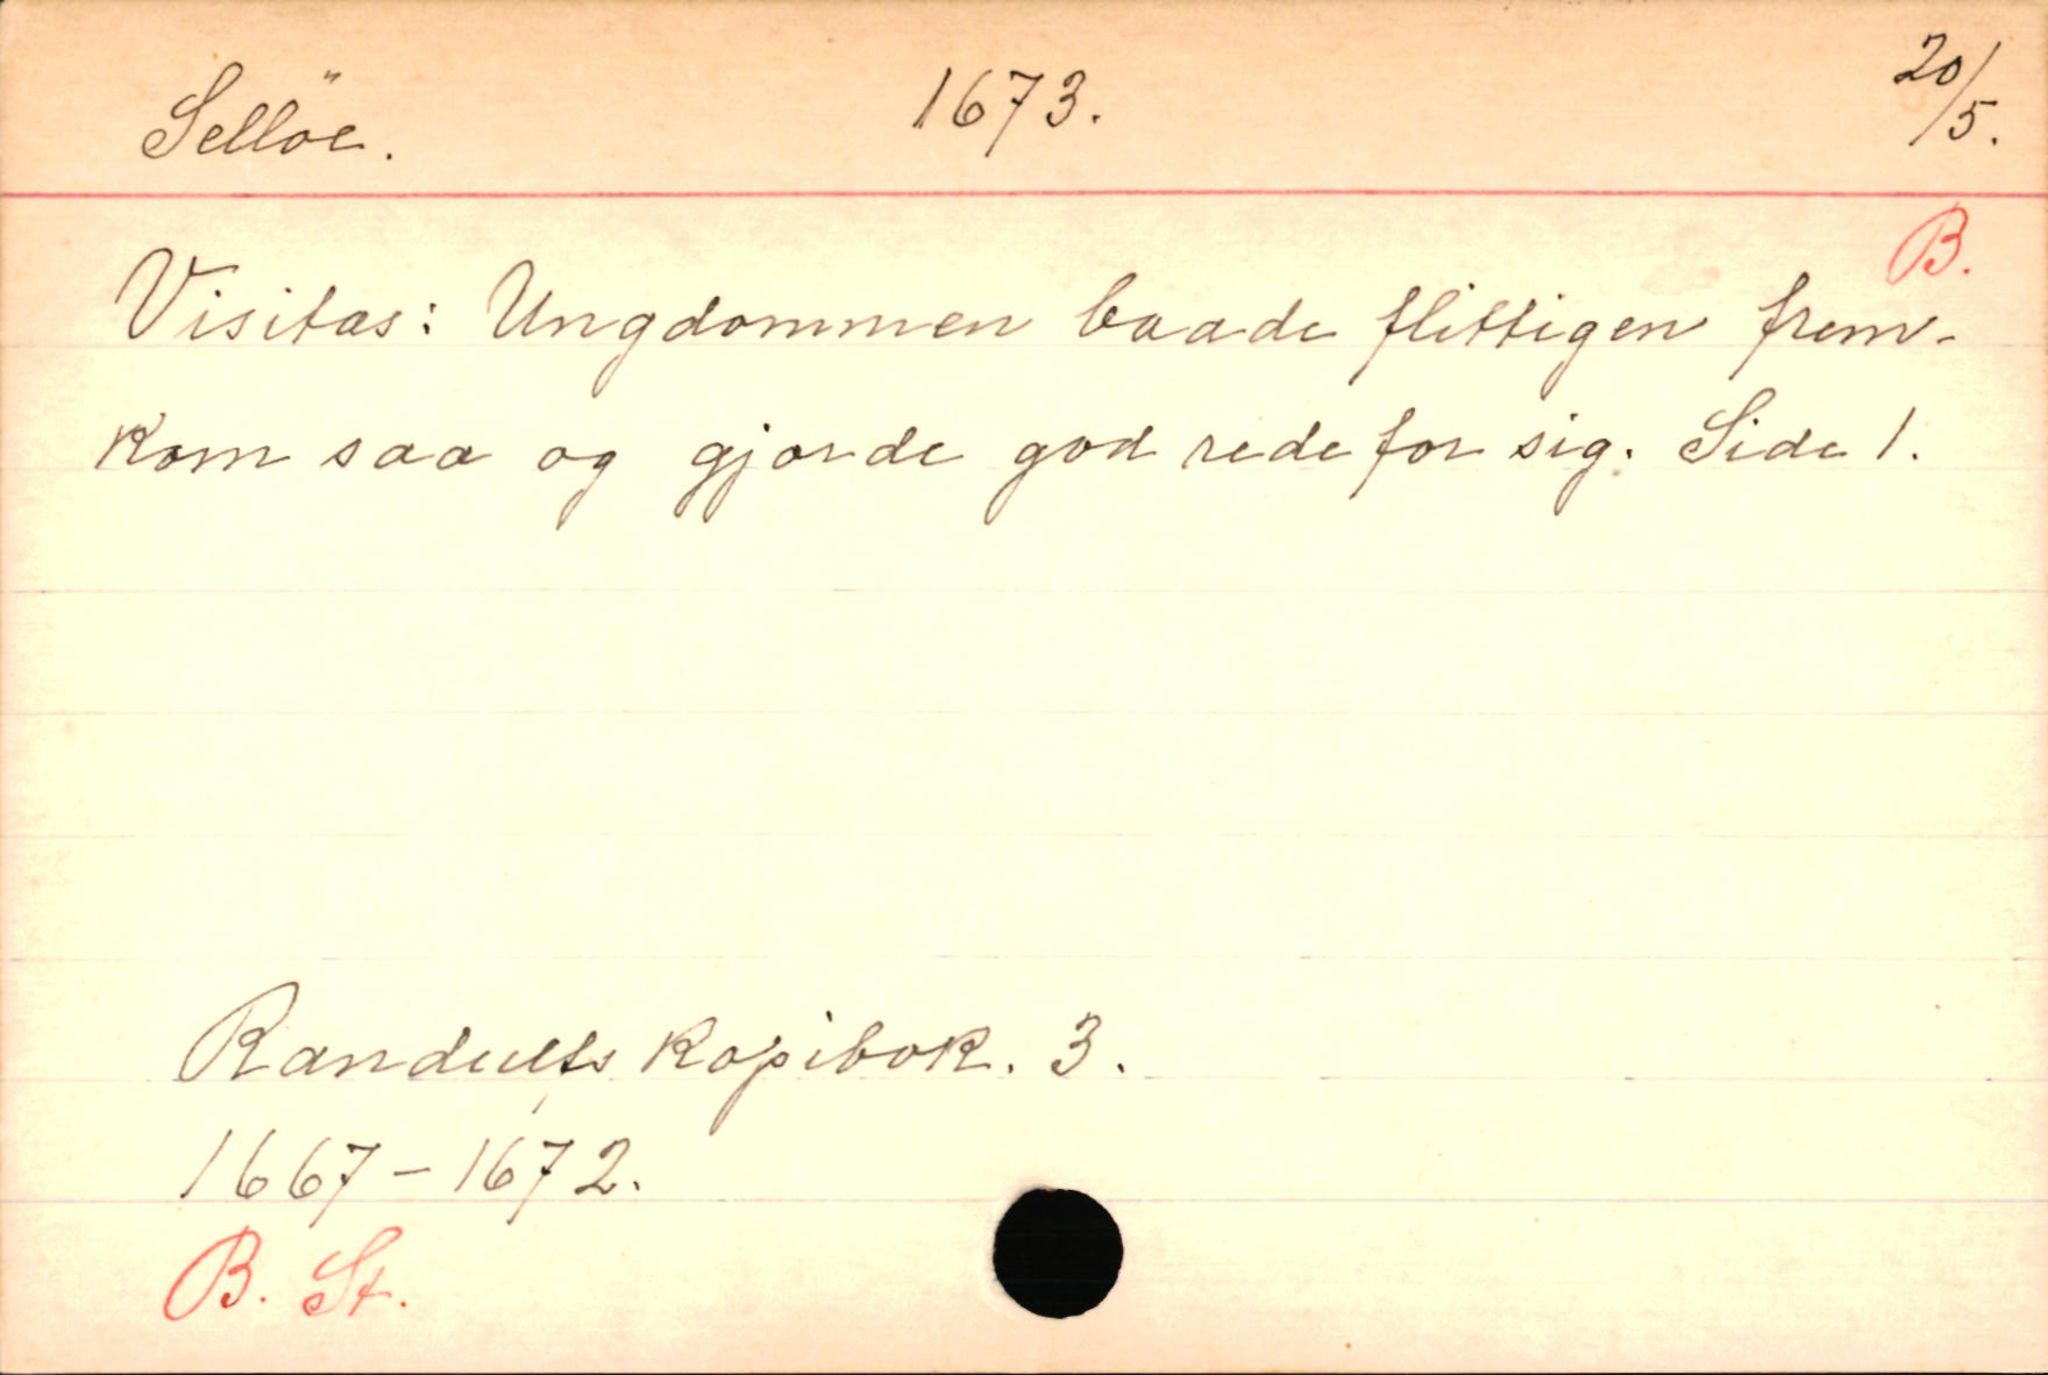 Sellöe. 1673. 20/5.
B.
Visitas: Ungdommen baade flittigen frem-
kom saa og gjorde god rede for sig. Side 1.
Randulfs kopibok. 3.
1667-1672.
B. St.